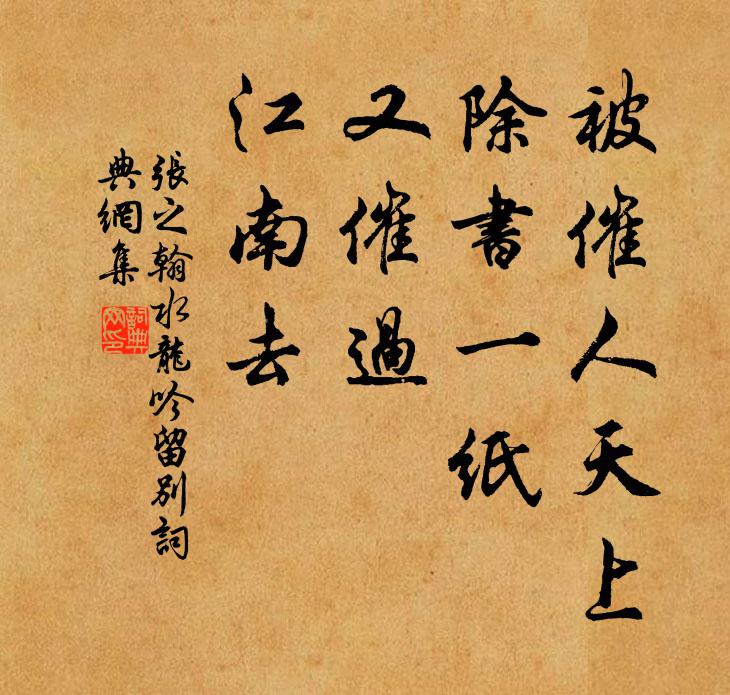 被催人天上
除書一紙
又催過
江南去
張之翰水龍吟留別詞
典網集
詞典網印